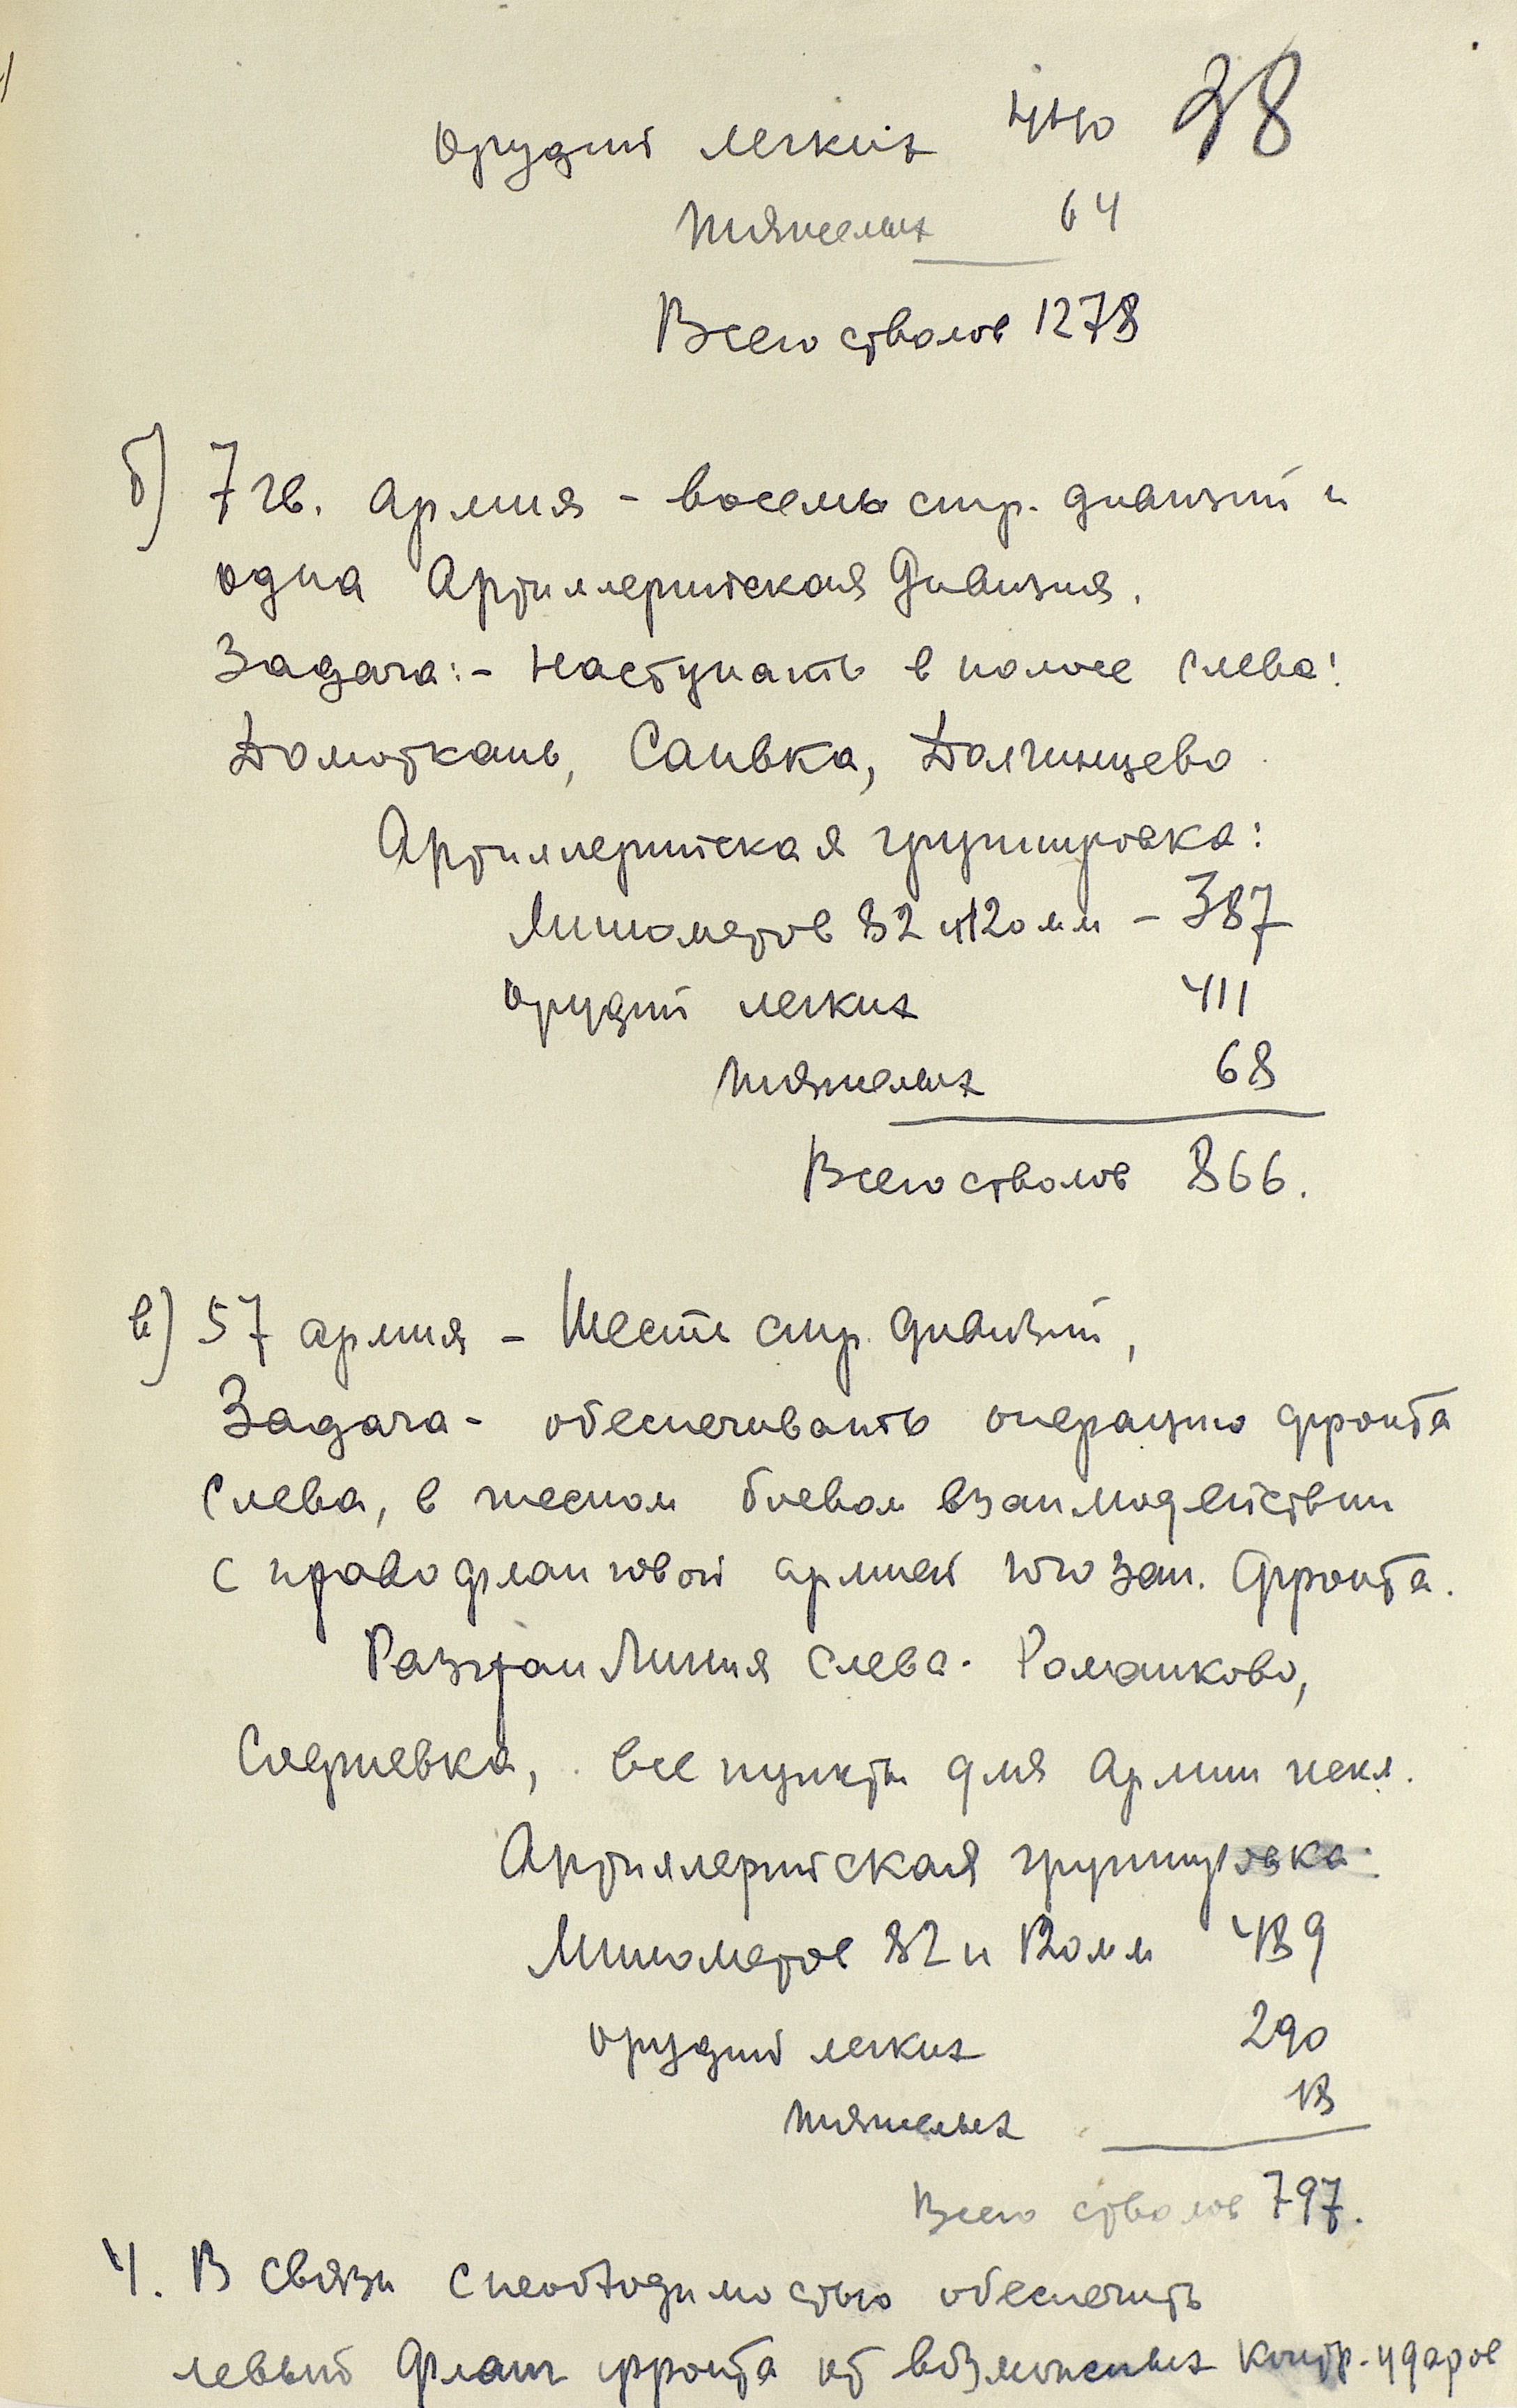 38
Орудий легких 440
тяжелых 64
Всего стволов 1278
б) 7 гв. армия - восемь стр. дивизий и
одна Артиллерийская Дивизия.
Задача:- Наступать в полосе слева:
Домоткань, Саивка, Долгинцево
Артиллерийская группировка:
Минометов 82 и 120 мм - 387
Орудий легких 411
тяжелых 68
Всего стволов 866.
в) 57 армия - Шесть стр. дивизий,
Задача - обеспечивать операцию фронта
слева, в тесном боевом взаимодействии
с правофланговой армией Югозап. Фронта.
Разгран Линия слева. Романково,
все пункты для Армии искл.
Артиллерийская группировка
Минометов 82 и 120 мм 489
Орудий легких 290
тяжелых 18
Всего стволов 797.
4. В связи с необходимостью обеспечить
левый фланг фронта от возможных контр-ударов